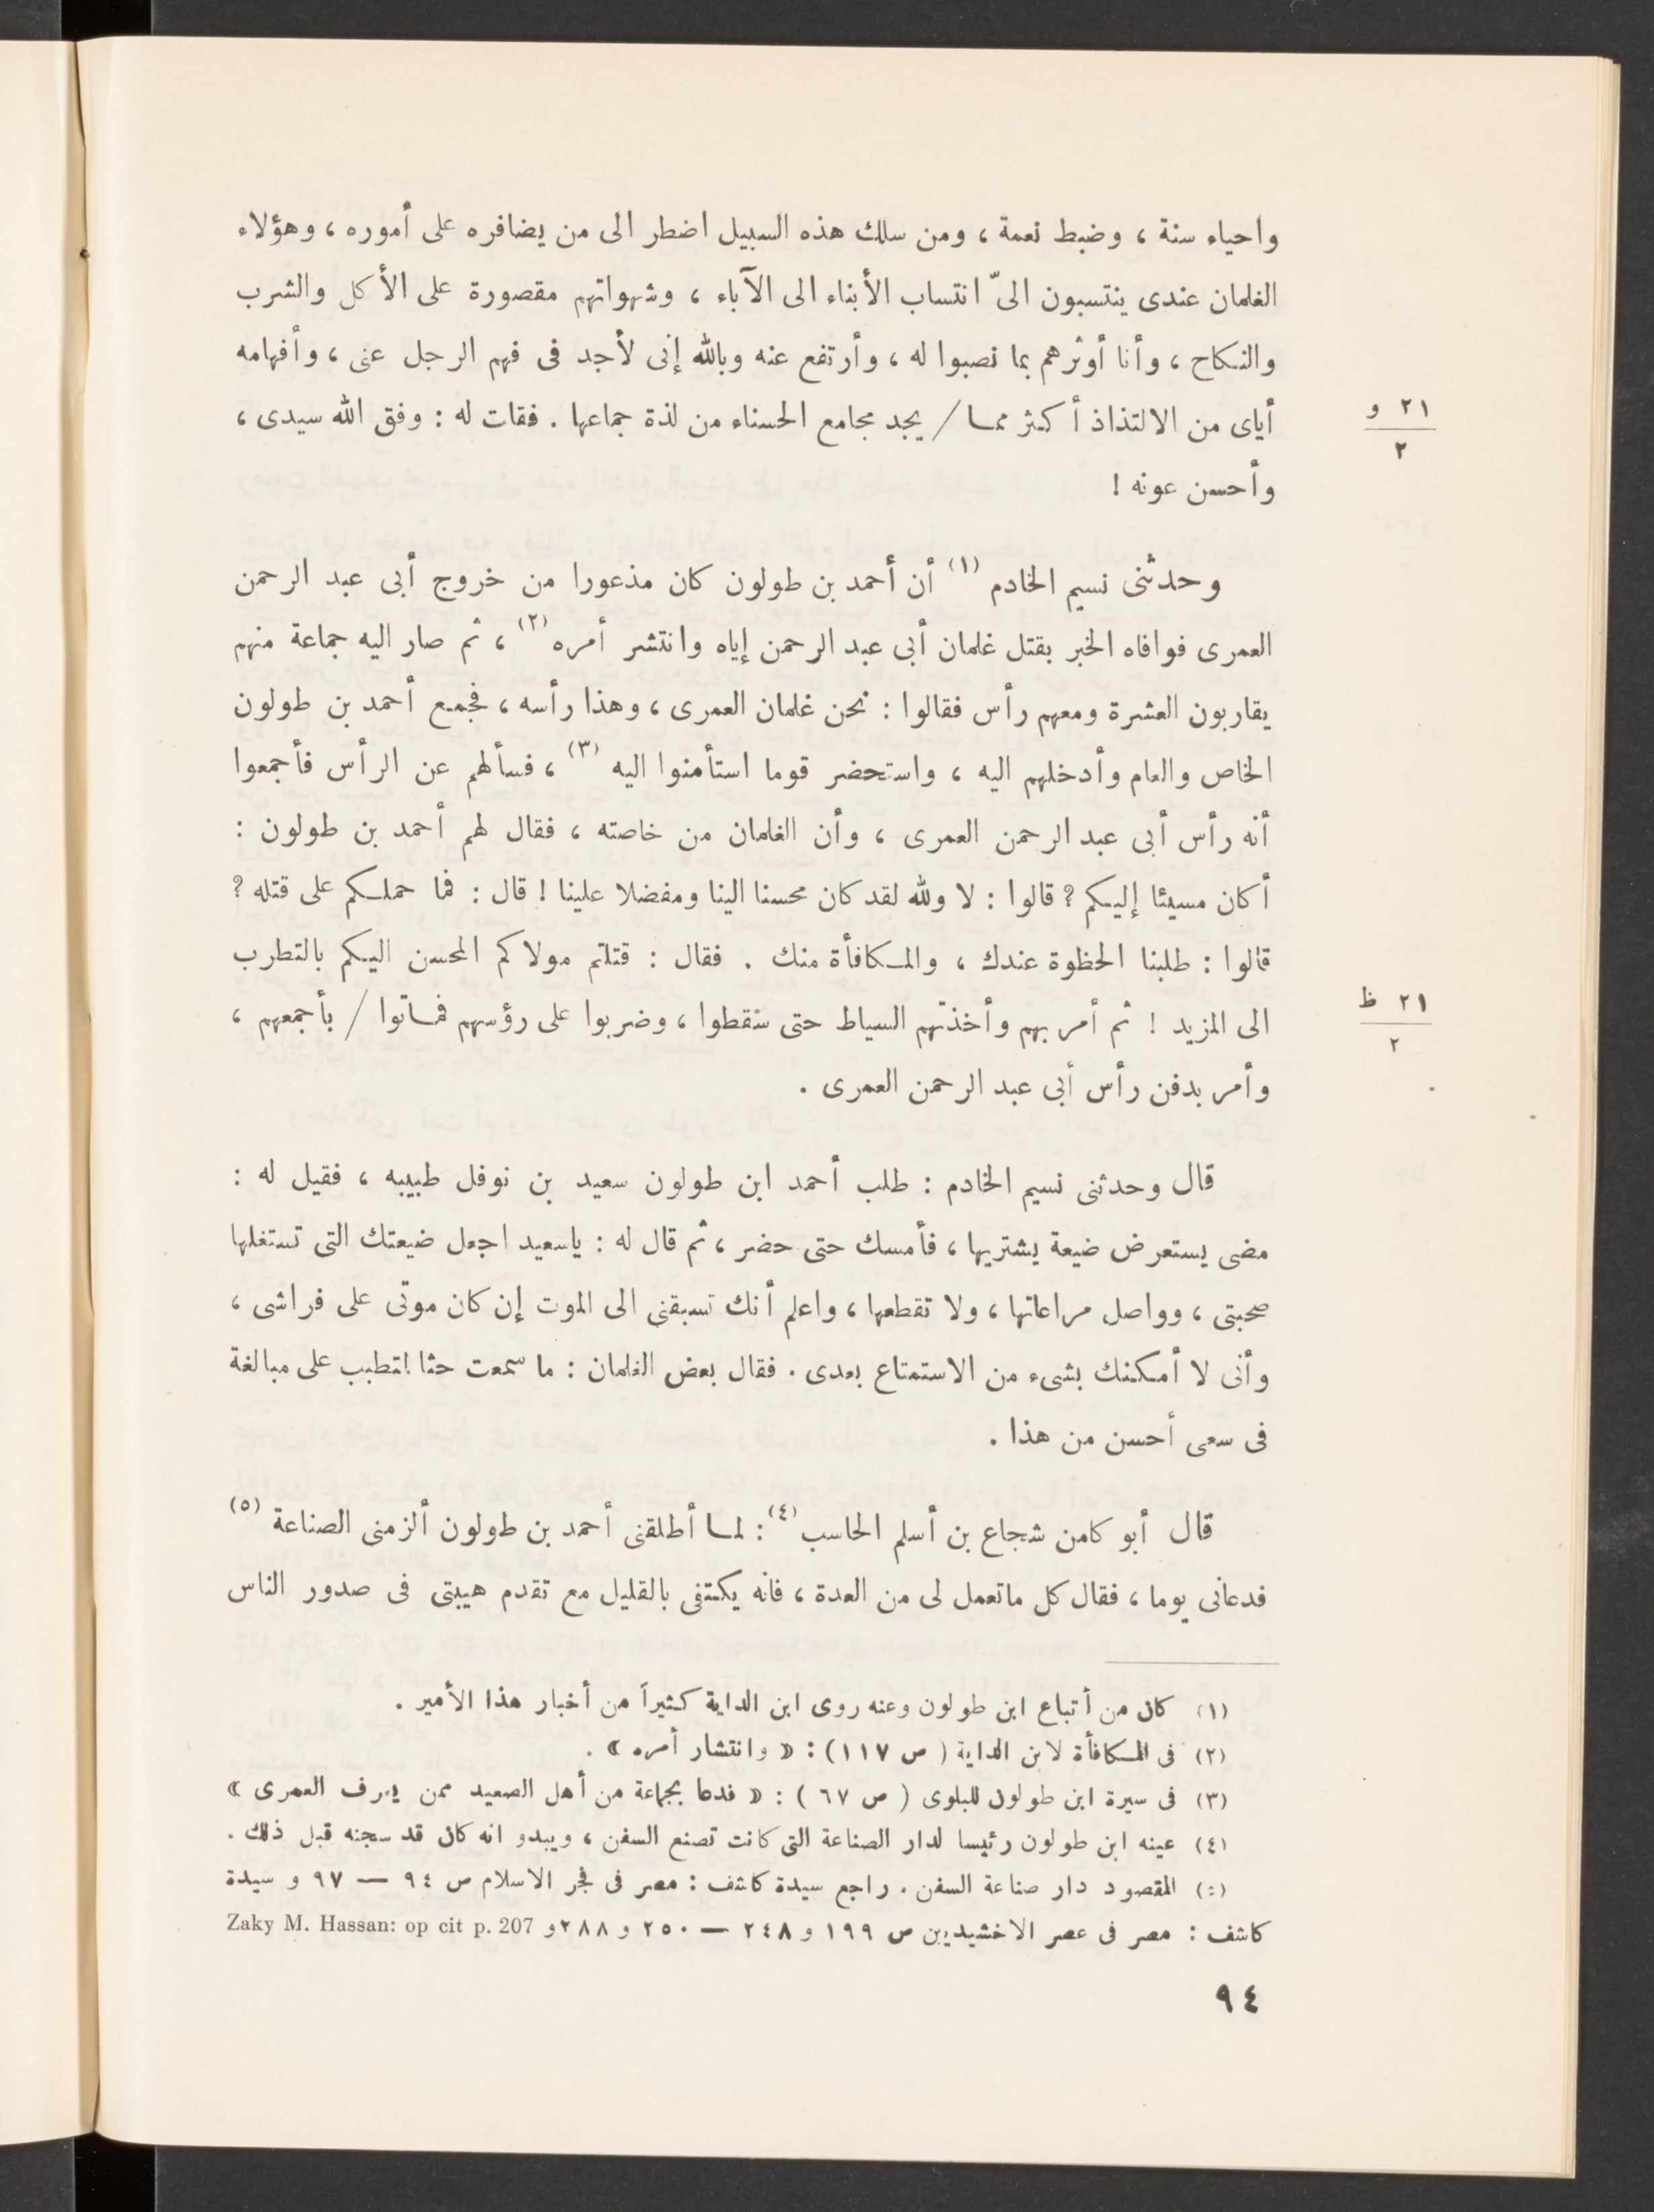 واحياء سنة ، وضبط نعمة ، ومن سلك هذه السبيل اضطر الى من يضافره على أموره ، وهؤلاء
الغلمان عندى ينتسبون الىّ انتساب الأبناء الى الآباء ، وشهواتهم مقصورة على الأكل والشرب
والنكاح ، وأنا أوثرهم بما نصبوا له ، وأرتفع عنه وبالله إنى لأجد فى فهم الرجل عنى ، وأفهامه
أياى من الالتذاذ أكثر مما / يجد مجامع الحسناء من لذة جماعها . فقات له : وفق الله سيدى ،
٢١ و
٢
وأحسن عونه !
وحدثنى نسيم الخادم (١) أن أحمد بن طولون كان مذعورا من خروج أبى عبد الرحمن
العمرى فوافاه الخبر بقتل غلمان أبى عبد الرحمن إياه وانتشر أمره (٢) ، ثم صار اليه جماعة منهم
يقاربون العشرة ومعهم رأس فقالوا : نحن غلمان العمرى ، وهذا رأسه ، فجمع أحمد بن طولون
الخاص والعام وأدخلهم اليه ، واستحضر قوما استأمنوا اليه (٣) ، فسألهم عن الرأس فأجمعوا
أنه رأس أبى عبد الرحمن العمرى ، وأن الغلمان من خاصته ، فقال لهم أحمد بن طولون :
أكان مسيئا إليكم ? قالوا : لا ولله لقد كان محسنا الينا ومفضلا علينا ! قال : فما حملكم على قتله ?
قالوا : طلبنا الحظوة عندك ، والمكافأة منك . فقال : قتلتم مولاكم المحسن اليكم بالتطرب
الى المزيد ! ثم أمر بهم وأخذتهم السياط حتى سقطوا ، وضربوا على رؤسهم فماتوا / بأجمعهم ،
٢١ ظ
٢
وأمر بدفن رأس أبى عبد الرحمن العمرى .
قال وحدثنى نسيم الخادم : طلب أحمد ابن طولون سعيد بن نوفل طبيبه ، فقيل له :
مضى يستعرض ضيعة يشتريها ، فأمسك حتى حضر ، ثم قال له : ياسعيد اجعل ضيعتك التى تستغلها
صحبتى ، وواصل مراعاتها ، ولا تقطعها ، واعلم أنك تسبقنى الى الموت إن كان موتى على فراشى ،
وأنى لا أمكنك بشىء من الاستمتاع بعدى . فقال بعض الغلمان : ما سمعت حثا لتطبب على مبالغة
فى سعى أحسن من هذا .
قال أبو كامن شجاع بن أسلم الحاسب (٤) : لما أطلقنى أحمد بن طولون ألزمنى الصناعة (٥)
فدعانى يوما ، فقال كل ماتعمل لى من العدة ، فانه يكتفى بالقليل مع تقدم هيبتى فى صدور الناس
(١) كان من أتباع ابن طولون وعنه روى ابن الداية كثيراً من أخبار هذا الأمير .
(٢) فى المكافأة لابن الداية ( ص ١١٧ ) : « وانتشار أمره » .
(٣) فى سيرة ابن طولون للبلوى ( ص ٦٧ ) : « فدعا بجماعة من أهل الصعيد ممن يعرف العمرى »
(٤) عينه ابن طولون رئيسا لدار الصناعة التى كانت تصنع السفن ، ويبدو انه كان قد سجنه قبل ذلك .
(٥) المقصود دار صناعة السفن . راجع سيدة كاشف : مصر فى فجر الاسلام ص ٩٤ — ٩٧ و سيدة
كاشف : مصر فى عصر الاخشيديين ص ١٩٩ و ٢٤٨ — ٢٥٠ و ٢٨٨ و Zaky M. Hassan: op cit p. 207
٩٤